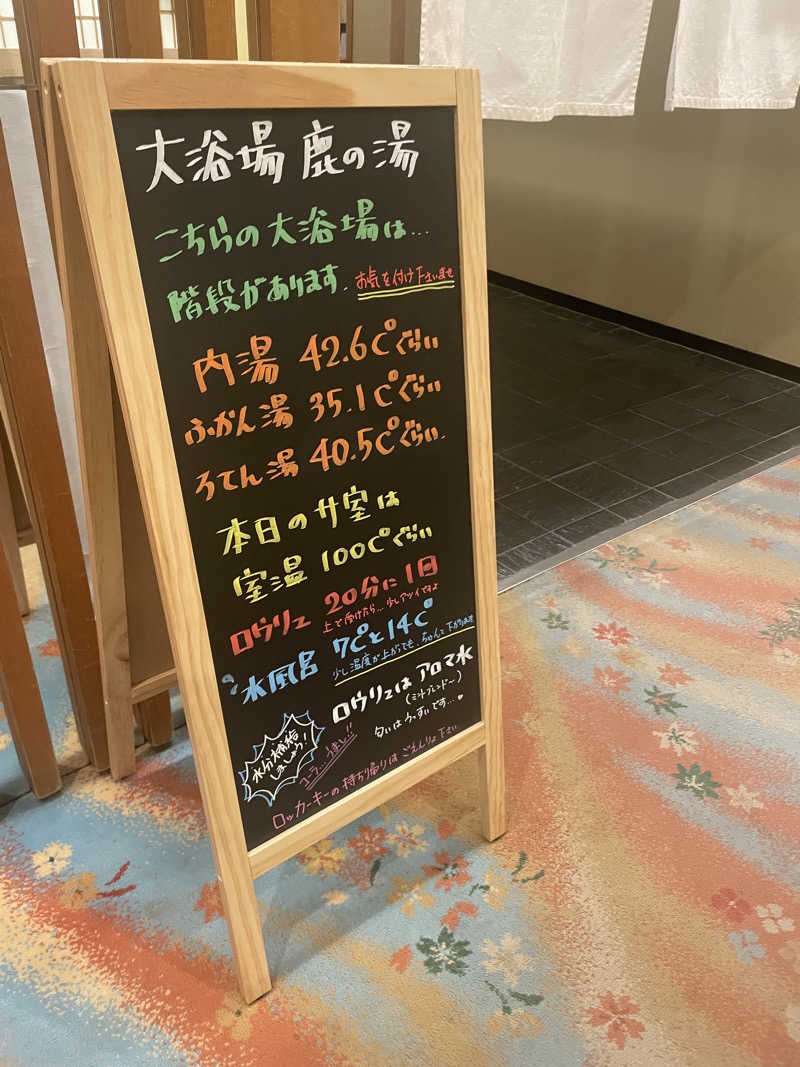 大浴場 鹿の湯
こちらの大浴場は...
階段があります. お気を付け下さいませ
内湯 42.6C°ぐらい
ふかん湯 35.1C°ぐらい
ろてん湯 40.5C°ぐらい.
本日のサ室は
室温 100C°ぐらい
ロウリュ 20分に1回
上で受けたら...少しアツイですよ
水風呂 7C°と14C°
少し温度が上がっても、ちゃんと下がります
ロウリュはアロマ水
(ミントブレンド〜)
匂いはうっすいです...
水分補給
しましょう!
コーラ...うまい!!
ロッカーキーの持ち帰りはごえんりょ下さい